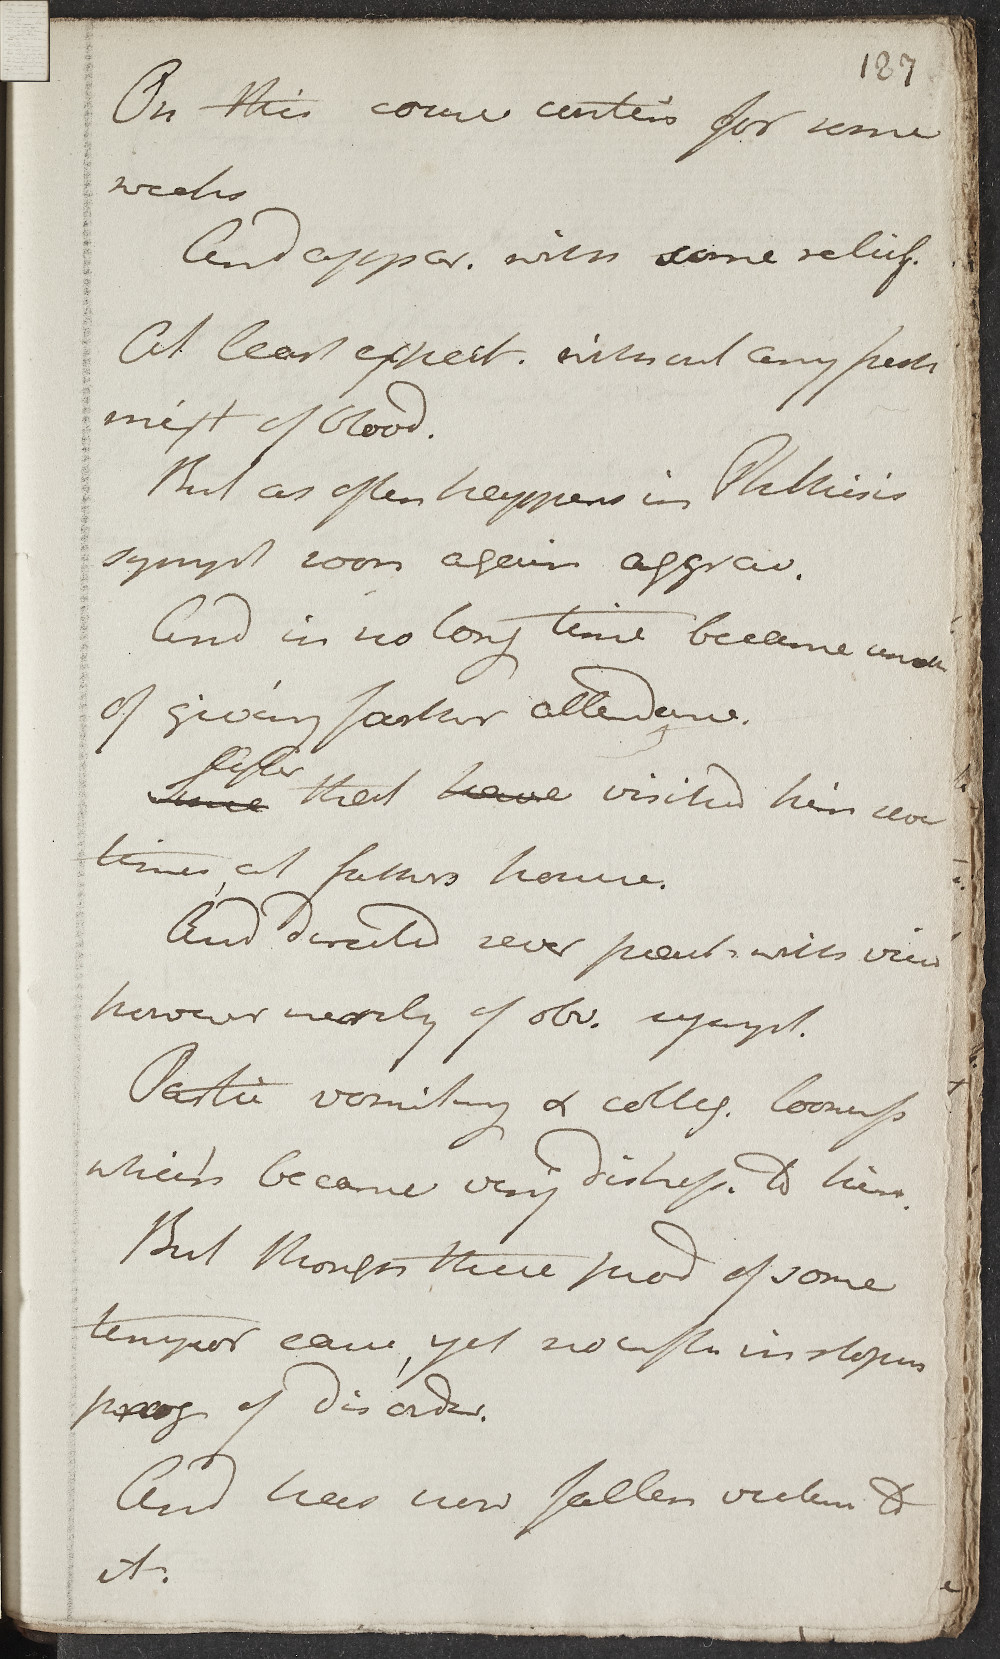 187
On this course contin for some
weeks
And appar. with some relief.
At least expect. without any fresh
mixt of blood.
But as often happens in Phthisis
sympt soon again aggrav.
And in no long time became
of giving farther attendance.
After
Since that have visited him sever
times, at fathers house.
And directed sever with view
however merely of obv. sympt.
Partic vomiting & colliq. looseness
which became very distress. to him.
But though these prod of some
tempor ease, yet no in stopin
prog of disorder.
And has now fallen victim to
it.